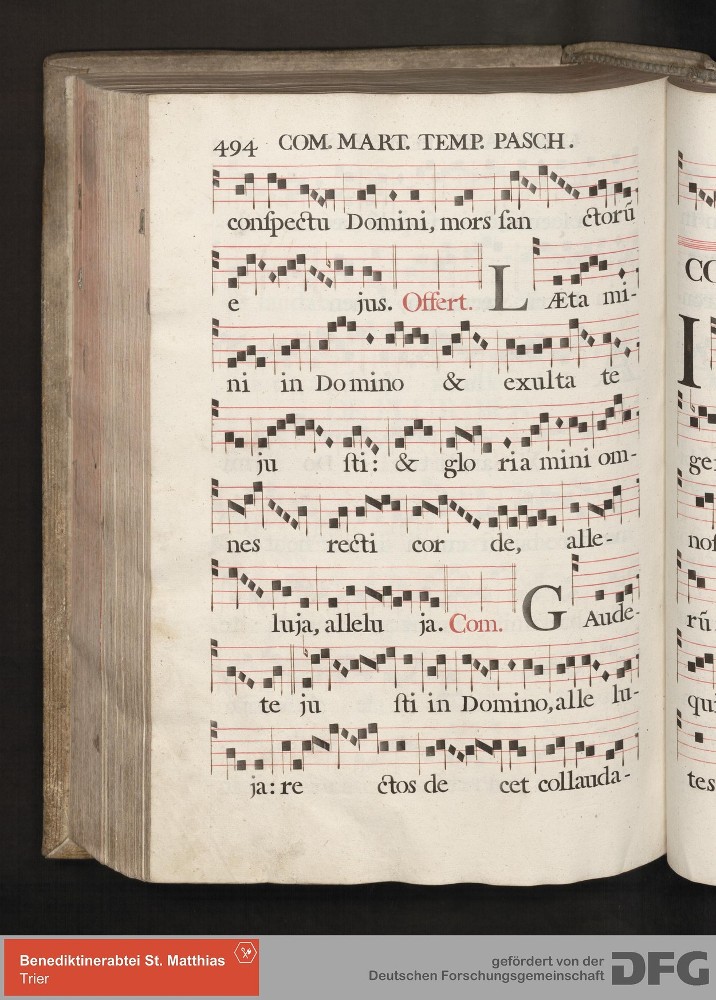 494 COM. MART. TEMP. PASCH.
conſpectu Domini, mors ſan ctorũ
e jus. Offert. LÆta mi-
ni in Domino & exulta te
ju ſti: & glo ria mini om-
nes recti cor de, alle-
luja, allelu ja. Com. GAude-
te ju ſti in Domino, alle lu-
ja: re ctos de cet collauda-
CO
I
ge
noſ
rũ
qui
tes
Benediktinerabtei St. Matthias
Trier
gefördert von der
Deutschen Forschungsgemeinschaft
DFG